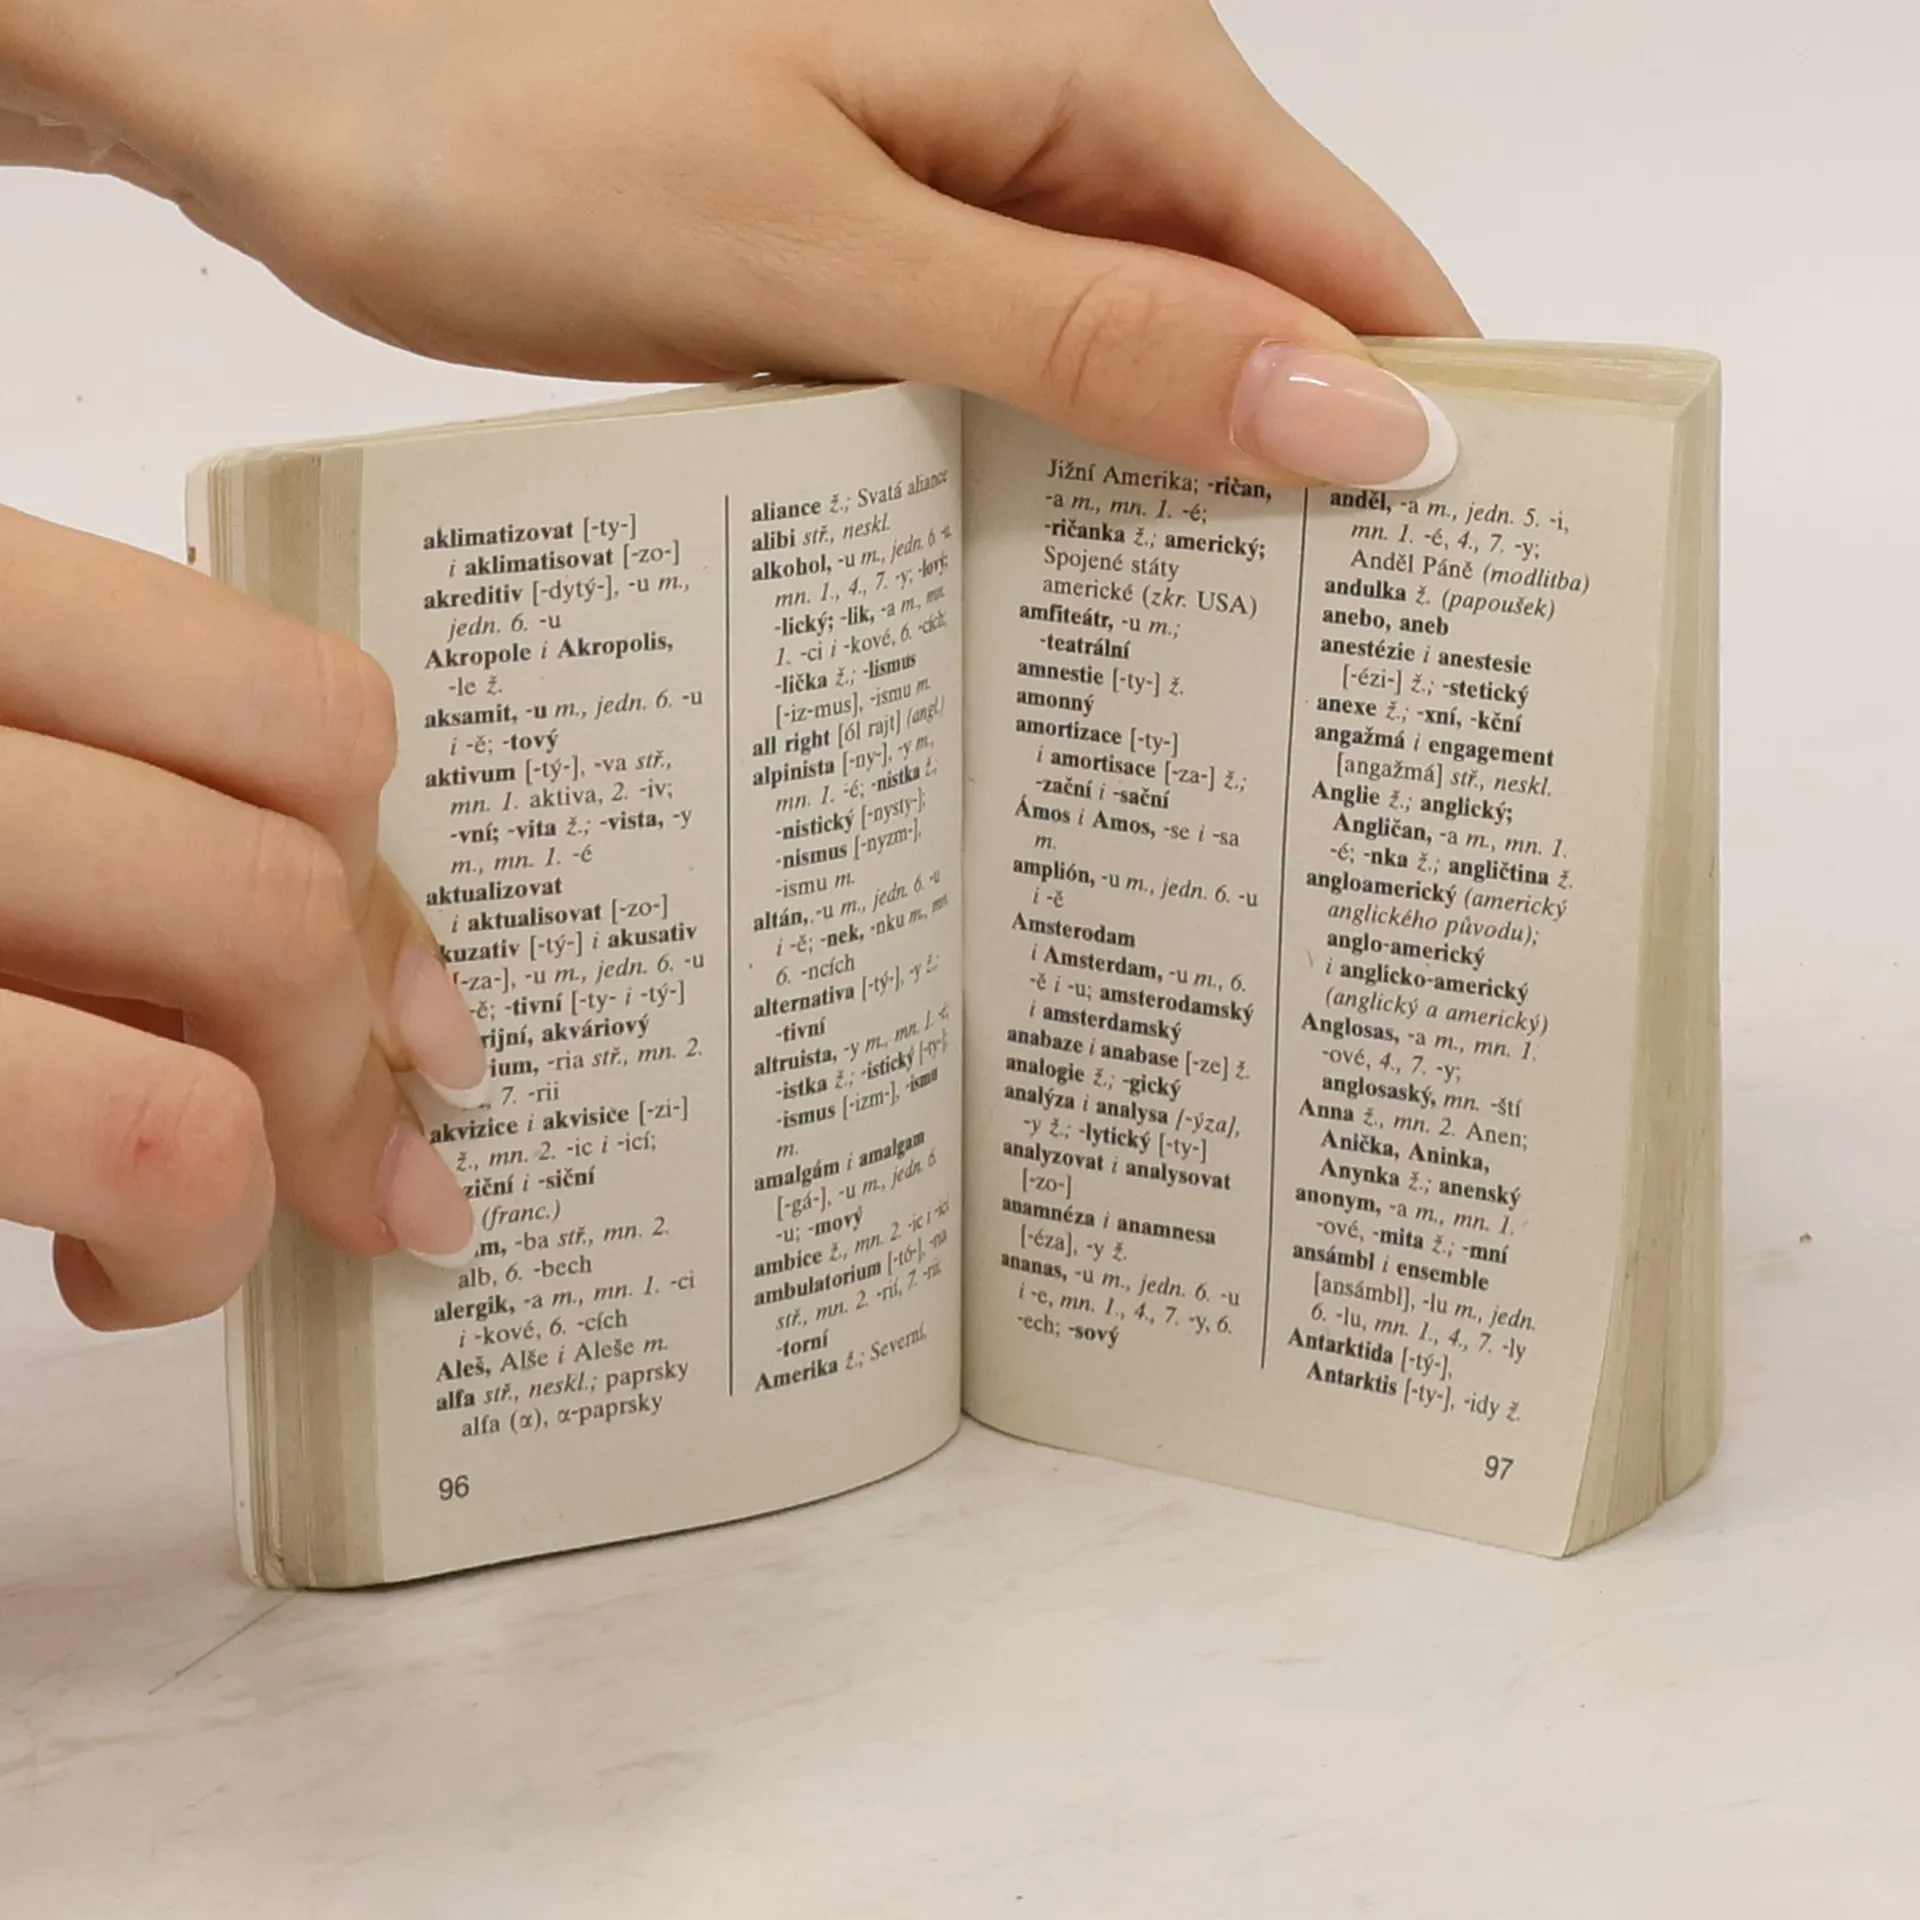 aklimatizovat [-ty-]
i aklimatisovat [-zo-]
akreditiv [-dytý-], -u m.,
jedn. 6. -u
Akropole i Akropolis,
-le ž.
aksamit, -u m., jedn. 6. -u
i -ě; -tový
aktivum [-tý-], -va stř.,
mn. 1. aktiva, 2. -iv;
-vní; -vita ž.; -vista, -y
m., mn. 1. -é
aktualizovat
i aktualisovat [-zo-]
kuzativ [-tý-] i akusativ
[-za-], -u m., jedn. 6. -u
-ě; -tivní [-ty- i -tý-]
rijní, akváriový
ium, -ria stř., mn. 2.
, 7. -rii
akvizice i akvisice [-zi-]
ž., mn. 2. -ic i -icí;
ziční i -siční
(franc.)
m, -ba stř., mn. 2.
alb, 6. -bech
alergik, -a m., mn. 1. -ci
i -kové, 6. -cích
Aleš, Alše i Aleše m.
alfa stř., neskl.; paprsky
alfa (α), α-paprsky
96
aliance ž.; Svatá aliance
alibi stř., neskl.
alkohol, -u m., jedn. 6 -u,
mn. 1., 4., 7. -y; -lový;
-lický; -lik, -a m., mn.
1. -ci i -kové, 6. -cích;
-lička ž.; -lismus
[-iz-mus], -ismu m.
all right [ól rajt] (angl.)
alpinista [-ny-], -y m.,
mn. 1. -é; -nistka ž.;
-nistický [-nysty-];
-nismus [-nyzm-],
-ismu m.
altán, -u m., jedn. 6. -u
i -ě; -nek, -nku m., mn.
6. -ncích
alternativa [-tý-], -y ž.;
-tivní
altruista, -y m., mn. 1. -é;
-istka ž.; -istický [-ty-];
-ismus [-izm-], -ismu
m.
amalgám i amalgam
[-gá-], -u m., jedn. 6.
-u; -mový
ambice ž., mn. 2. -ic i -icí
ambulatorium [-tó-], -ria
stř., mn. 2. -rií, 7. -rii;
-torní
Amerika ž.; Severní,
Jižní Amerika; -ričan,
-a m., mn. 1. -é;
-ričanka ž.; americký;
Spojené státy
americké (zkr. USA)
amfiteátr, -u m.;
-teatrální
amnestie [-ty-] ž.
amonný
amortizace [-ty-]
i amortisace [-za-] ž.;
-zační i -sační
Ámos i Amos, -se i -sa
m.
amplión, -u m., jedn. 6. -u
i -ě
Amsterodam
i Amsterdam, -u m., 6.
-ě i -u; amsterodamský
i amsterdamský
anabaze i anabase [-ze] ž.
analogie ž.; -gický
analýza i analysa [-ýza],
-y ž.; -lytický [-ty-]
analyzovat i analysovat
[-zo-]
anamnéza i anamnesa
[-éza], -y ž.
ananas, -u m., jedn. 6. -u
i -e, mn. 1., 4., 7. -y, 6.
-ech; -sový
anděl, -a m., jedn. 5. -i,
mn. 1. -é, 4., 7. -y;
Anděl Páně (modlitba)
andulka ž. (papoušek)
anebo, aneb
anestézie i anestesie
[-ézi-] ž.; -stetický
anexe ž.; -xní, -kční
angažmá i engagement
[angažmá] stř., neskl.
Anglie ž.; anglický;
Angličan, -a m., mn. 1.
-é; -nka ž.; angličtina ž.
angloamerický (americký
anglického původu);
anglo-americký
i anglicko-americký
(anglický a americký)
Anglosas, -a m., mn. 1.
-ové, 4., 7. -y;
anglosaský, mn. -ští
Anna ž., mn. 2. Anen;
Anička, Aninka,
Anynka ž.; anenský
anonym, -a m., mn. 1.
-ové, -mita ž.; -mní
ansámbl i ensemble
[ansámbl], -lu m., jedn.
6. -lu, mn. 1., 4., 7. -ly
Antarktida [-tý-],
Antarktis [-ty-], -idy ž.
97